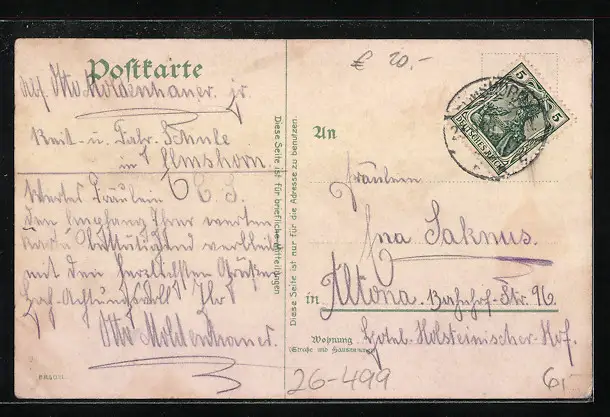 Postkarte
Abs. Otto Moldenhauer jr.
Reit- u. Fahr-Schule
in Elmshorn
Wertes Fräulein
den Empfang Ihrer werten
Karte bestätigend verbleibe
mit den herzlichsten Grüßen
Hochachtungsvoll Ihr
Otto Moldenhauer
Diese Seite ist für briefliche Mitteilungen
Diese Seite ist nur für die Adresse zu benutzen.
€ 20,-
5
5
DEUTSCHES REICH
An
Fräulein
Jaknus.
in Altona. Bahnhof-Str. 96
Wohnung
(Straße und Hausnummer)
Hotel Holsteinischer-Hof.
26-499
6,-